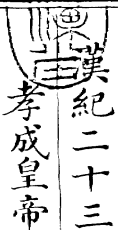 漢紀二十三
孝成皇帝